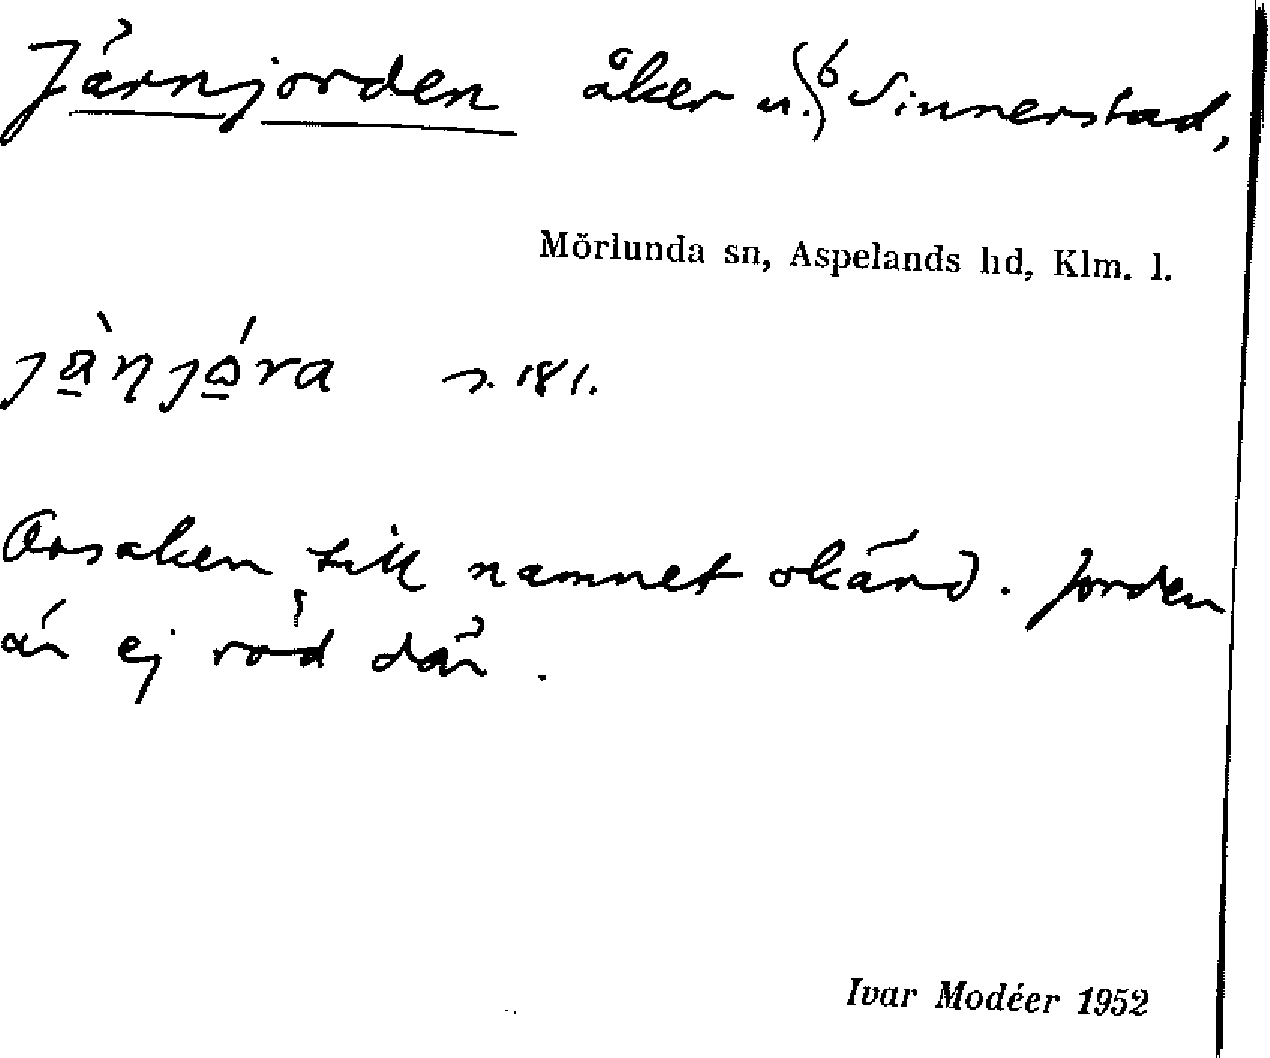 Järnjorden åker u. 6 Sinnerstad,
Mörlunda sn, Aspelands hd, Klm. l.
s. 181.
Orsaken till namnet okänd. Jorden
är ej röd där.
Ivar Modéer 1952